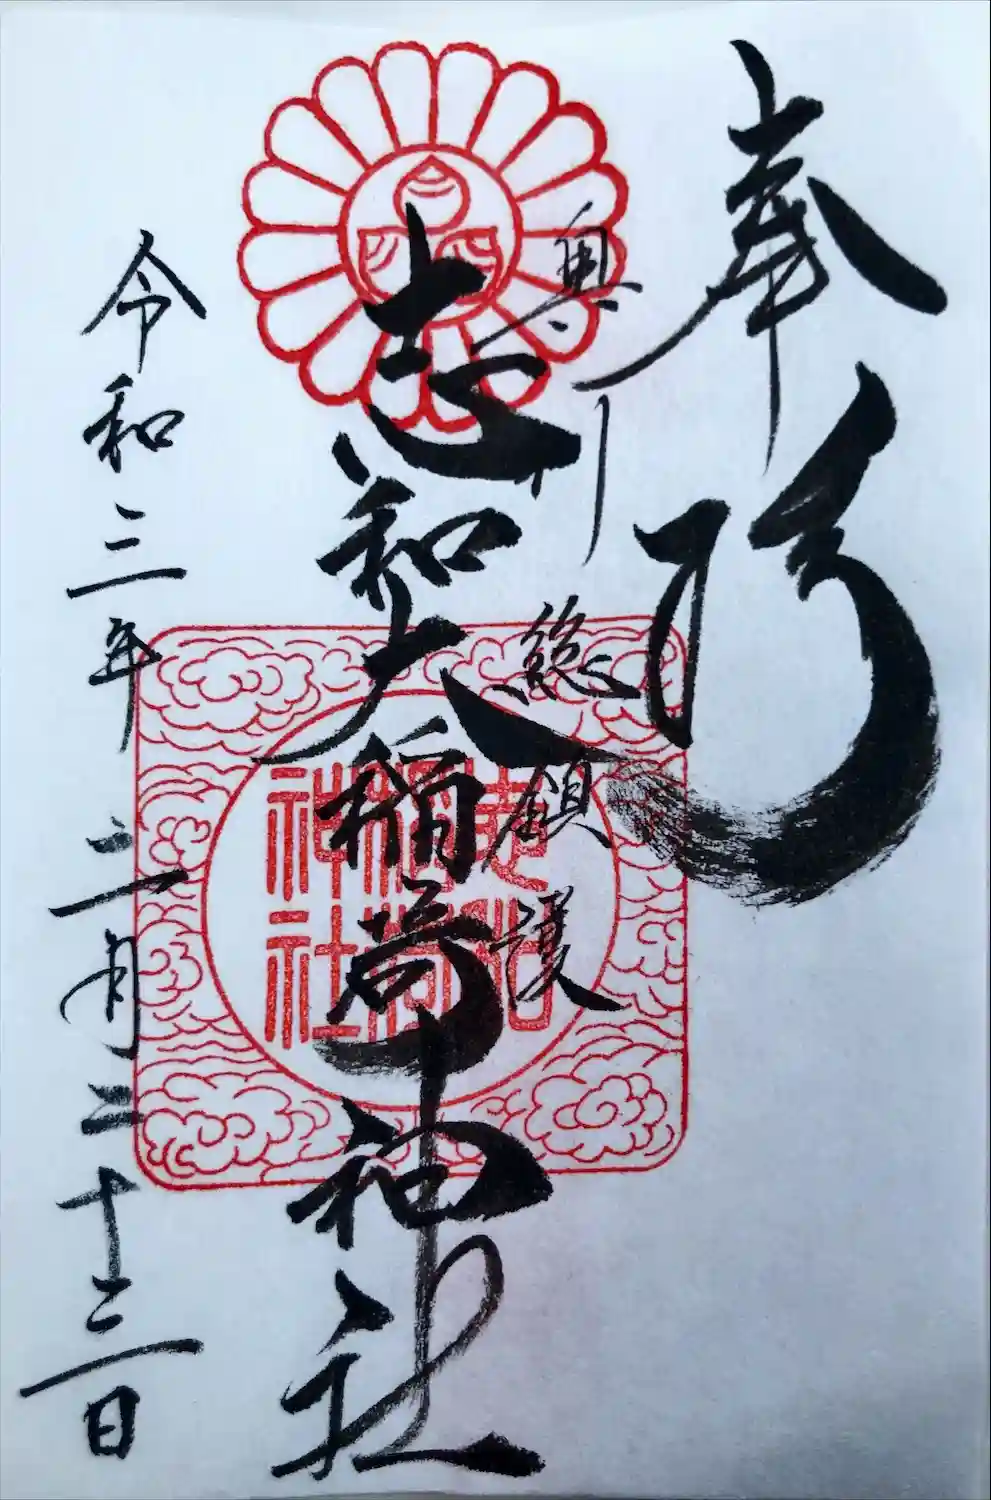 奉拝
奥州総鎮護
志和稲荷神社
志和大稲荷神社
令和三年二月二十二日